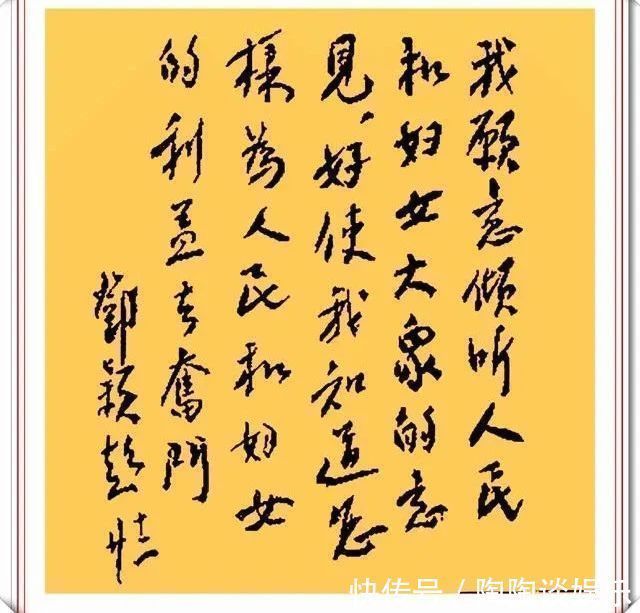 我願意傾听人民
和妇女大衆的意
見,好使我知道怎
樣為人民和妇女
的利益去奮鬥
鄧颖超
快传号 / 陶陶谈娱乐